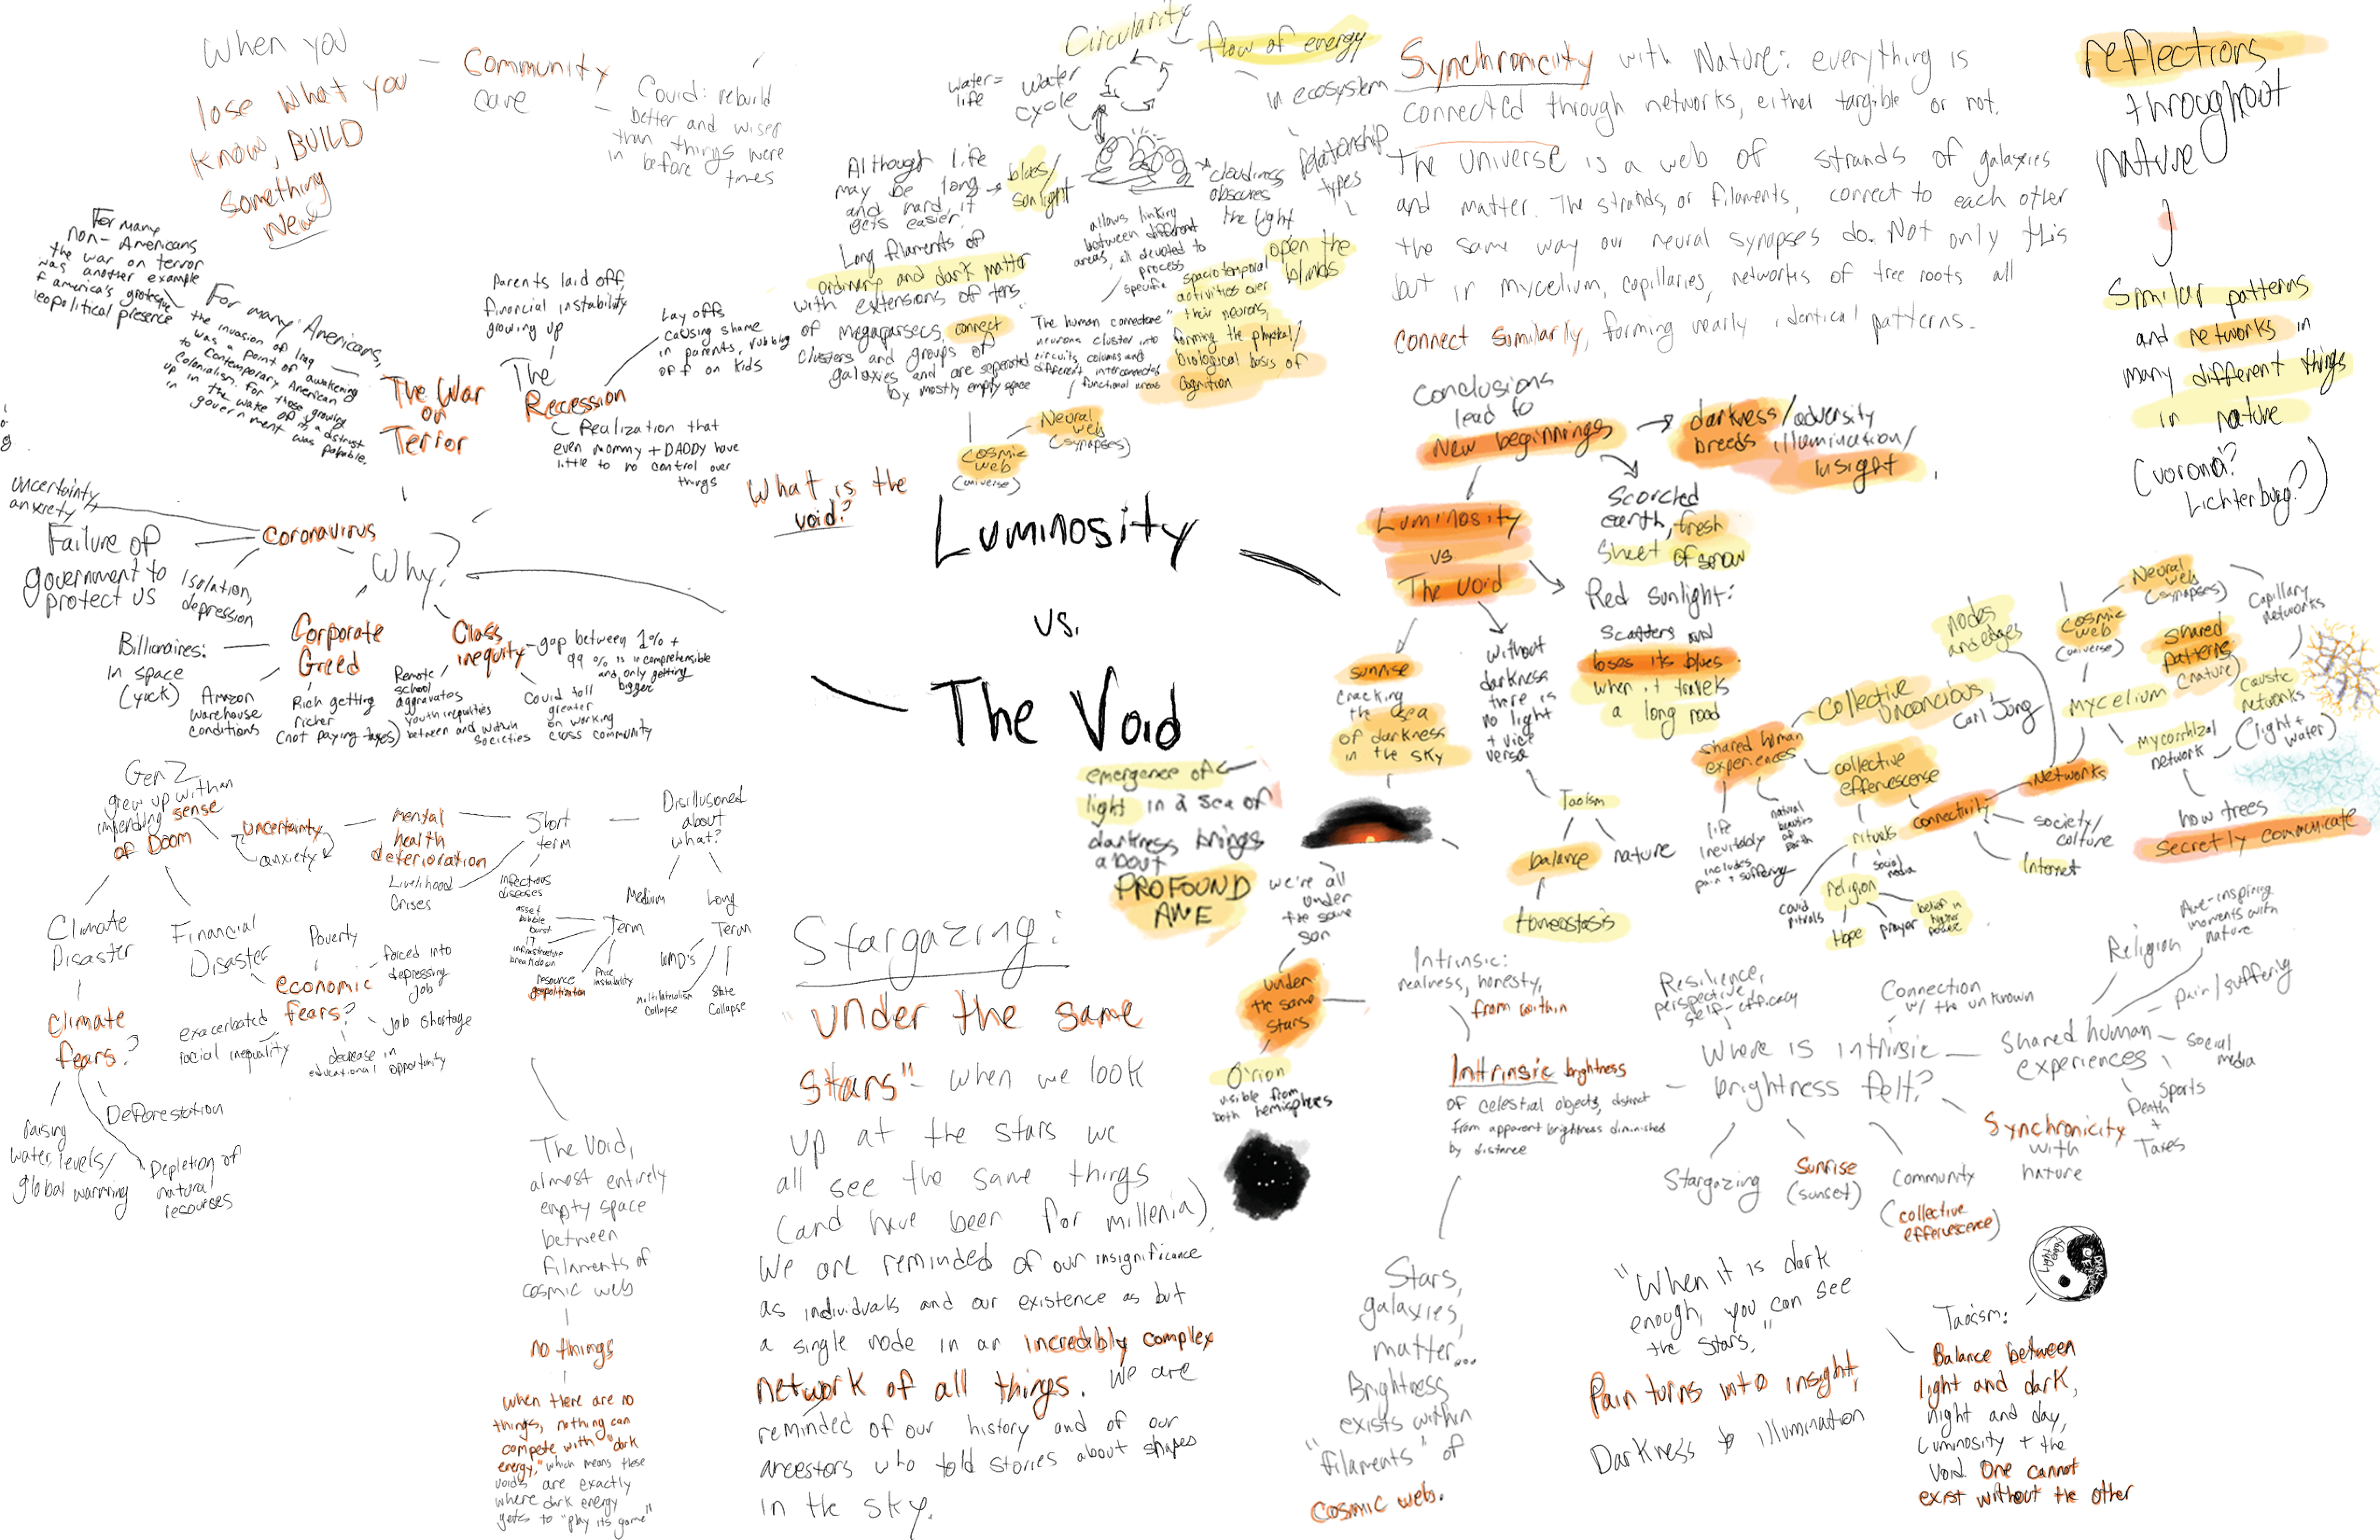 When you
lose what you
know, BUILD
something
New
Community
care
Covid: rebuild
better and wiser
than things were
in before
times
For many
non-Americans
the war on terror
was another example
f america's grotesque
eopolitical presence
For many Americans,
the invasion of Iraq
was a point of awakening
to contemporary American
colonialism. For those growing
up in the wake of
in a distrust
government was palpable.
The War
on
Terror
Parents laid off,
financial instability
growing up
The
Recession
Lay offs
causing shame
in parents, rubbing
off on kids
Realization that
even mommy + DADDY have
little to no control over
things
What is the
void?
uncertainty
anxiety
Coronavirus
Failure of
government to
protect us
Isolation,
depression
Why?
Billionaires:
in space
(yuck)
Corporate
Greed
Amazon
warehouse
conditions
Rich getting
richer
(not paying taxes)
Class
inequity
gap between 1% +
99% is incomprehensible
and only getting
bigger
Remote
school
aggravates
youth inequalities
between and within
societies
Covid toll
greater
on working
class community
Gen Z
grew up with an
impending sense
of Doom
uncertainty
anxiety
mental
health
deterioration
Livelihood
Crises
Short
term
infectious
diseases
Disillusioned
about
what?
Medium
Term
asset
bubble
burst
IT
infrastructure
breakdown
resource
geopolitization
Price
instability
Long
Term
WMD's
multilateralism
collapse
State
Collapse
Climate
Disaster
Financial
Disaster
Poverty
economic
fears?
forced into
depressing
job
job shortage
decrease in
educational opportunity
exacerbated
racial inequality
Climate
fears?
Deforestation
Raising
water levels/
global warming
Depletion of
natural
resources
The Void,
almost entirely
empty space
between
filaments of
cosmic web
no things
when there are no
things, nothing can
compete with "dark
energy," which means these
voids are exactly
where dark energy
gets to "play its game"
Circularity
flow of energy
in ecosystem
relationship
types
water=
life
water
cycle
cloudiness
obscures
the light
open the
blinds
Although life
may be long
and hard, it
gets easier.
blues/
sunlight
Long filaments of
ordinary and dark matter
with extensions of tens
of megaparsecs, connect
clusters and groups of
galaxies and are separated
by mostly empty space
allows linking
between different
areas, all devoted to
process
specific spaciotemporal
activities over
The human connectome"
neurons cluster into
circuits, columns and
different interconnected
functional areas
their neurons,
forming the physical/
biological basis of
Cognition
Neural
web
(synapses)
Cosmic
web
(universe)
Luminosity
vs.
The Void
emergence of
light in a sea of
darkness brings
about
PROFOUND
AWE
Stargazing:
"under the same
stars" - when we look
up at the stars we
all see the same things
(and have been for millenia)
We are reminded of our insignificance
as individuals and our existence as but
a single node in an incredibly complex
network of all things. We are
reminded of our history and of our
ancestors who told stories about shapes
in the sky.
Synchronicity with Nature: everything is
connected through networks, either tangible or not.
The universe is a web of strands of galaxies
and matter. The strands, or filaments, connect to each other
the same way our neural synapses do. Not only this
but in mycelium, capillaries, networks of tree roots all
connect similarly, forming nearly identical patterns.
Conclusions
lead to
New beginnings
darkness/adversity
breeds illumination/
insight
Scorched
earth, fresh
sheet of snow
Luminosity
vs
The void
Red sunlight:
scatters and
loses its blues
when it travels
a long road
sunrise
cracking
the sea
of darkness
in the sky
without
darkness
there is
no light
+ vice
versa
Taoism
balance
nature
Homeostasis
we're all
under
the same
sun
under
the same
stars
Orion
visible from
both hemispheres
Intrinsic:
realness, honesty,
from within
Intrinsic brightness
of celestial objects, distinct
from apparent brightness diminished
by distance
Stars,
galaxies,
matter...
Brightness
exists within
"filaments" of
cosmic web.
reflections
throughout
nature
Similar patterns
and networks in
many different things
in nature
(vorona?
Lichterburg?)
Neural
web
(synapses)
Capillary
networks
cosmic
web
(universe)
shared
patterns
(nature)
nodes
and edges
mycelium
caustic
networks
(light +
water)
mycorrhizal
network
how trees
secretly communicate
Networks
Connectivity
society/
culture
Internet
Collective
Unconcious,
Carl Jung
shared human
experiences
collective
effervescense
life
inevitably
includes
pain + suffering
natural
beauties
of
earth
rituals
social
media
religion
covid
rituals
Hope
prayer
belief in
higher
power
Resilience,
perspective,
self-efficacy
Connection
w/ the unknown
Where is intrinsic
brightness felt?
Shared human
experiences
Religion
Awe-inspiring
moments with
nature
pain/suffering
social
media
Sports
Death
+
Taxes
Synchronicity
with
nature
Stargazing
Sunrise
(sunset)
Community
(collective
effervescence)
"When it is dark
enough, you can see
the stars."
Pain turns into insight,
Darkness to illumination
Taoism:
Balance between
light and dark,
night and day,
Luminosity + the
Void. One cannot
exist without the other